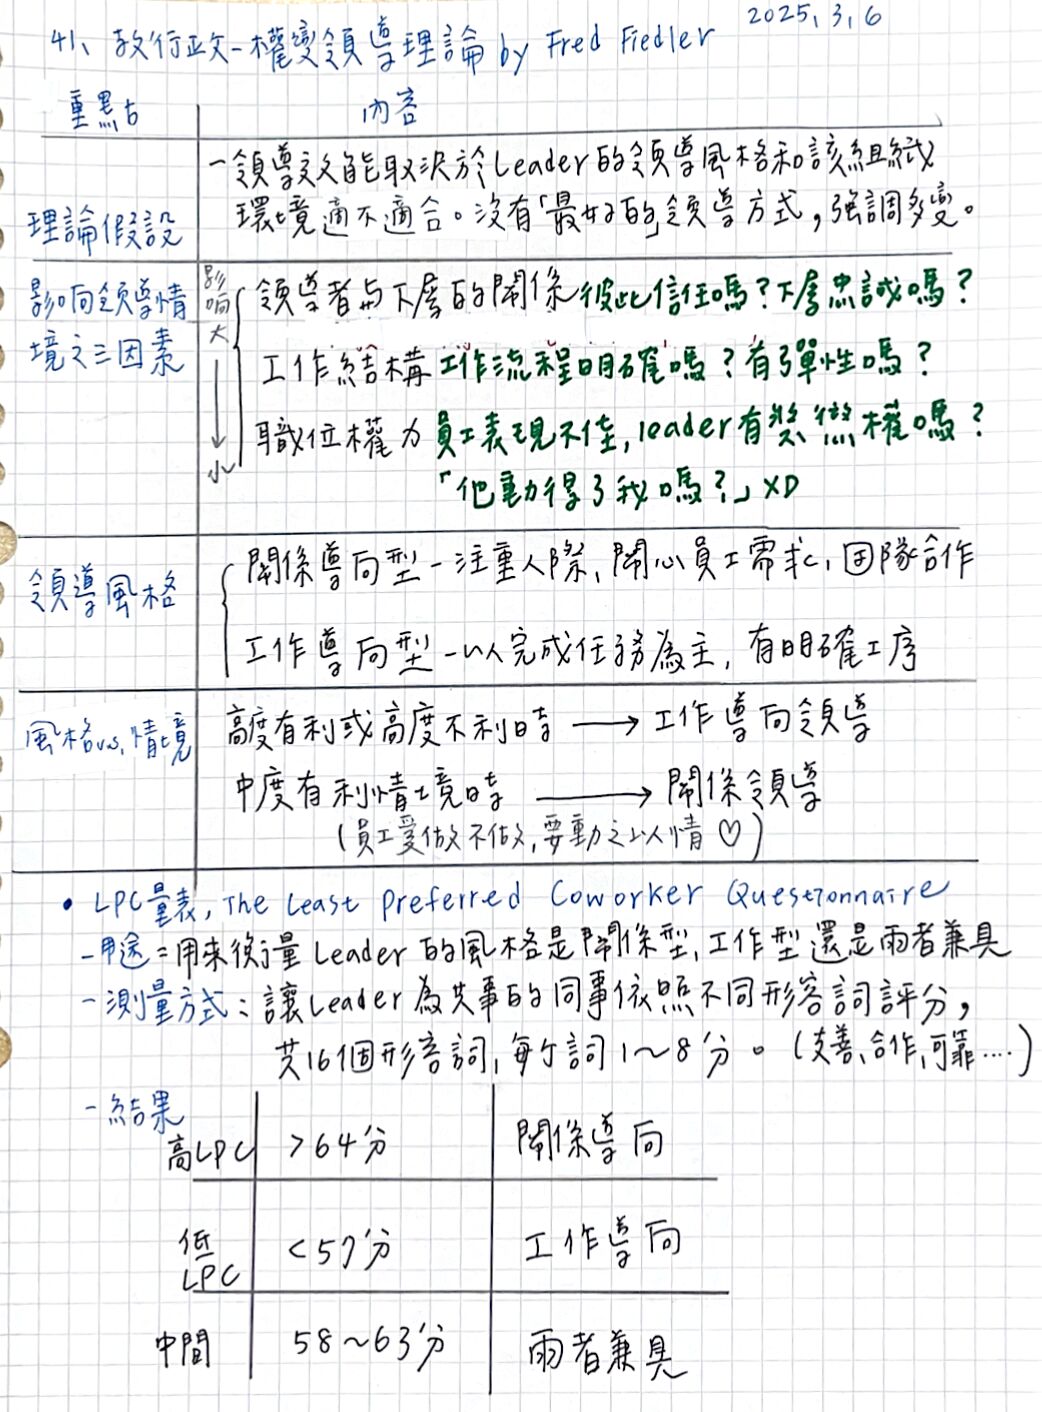 2025,3,6
41、教行政-權變領導理論 by Fred Fiedler
重點 內容
理論假設
-領導效能取決於Leader的領導風格和該組織
環境適不適合。沒有「最好的」領導方式,強調多變。
影响領導情
境之三因素
影响大
小
領導者與下屬的關係 彼此信任嗎?下屬忠誠嗎?
工作結構 工作流程明確嗎?有彈性嗎?
職位權力 員工表現不佳,leader有獎懲權嗎?
「他動得了我嗎?」XD
領導風格
關係導向型-注重人際、關心員工需求,團隊合作
工作導向型-以完成任務為主,有明確工序
風格vs.情境
高度有利或高度不利時→工作導向領導
中度有利情境時→關係領導
(員工愛做不做,要動之以情♡)
• LPC量表, The Least Preferred Coworker Questionnaire
-用途:用來衡量Leader的風格是關係型,工作型還是兩者兼具
-測量方式:讓Leader為共事的同事依照不同形容詞評分,
共16個形容詞,每个詞1~8分。(友善、合作,可靠....)
-結果
高LPC >64分 關係導向
低LPC <57分 工作導向
中間 58~63分 兩者兼具